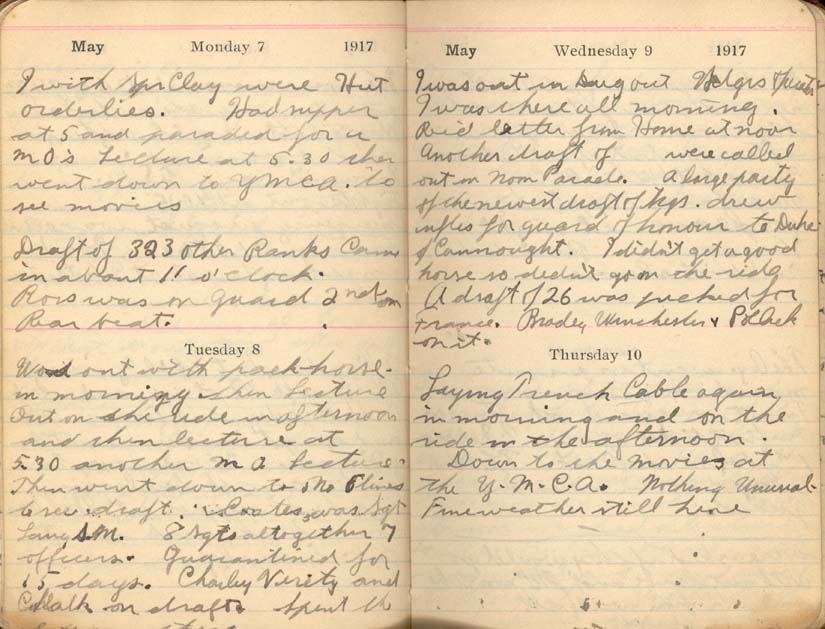 May Monday 7 1917
I with Spr Clay were Hut
orderlies. Had supper
at 5 and paraded for a
M O's Lecture at 5.30 then
went down to YMCA. to
see movies
Draft of 323 other Ranks Came
in about 11 o'clock.
Ross was on guard 2nd on
Rear beat.
Tuesday 8
Was out with pack-horse
in morning then Lecture
Out on the ride in afternoon
and then lecture at
5.30 another M O Lecture
Then went down to
to see draft. Coates was Sgt
S.M. 8 Sgts altogether 7
officers. Quarantined for
15 days. Charley Verity and
on draft. Spent the
May Wednesday 9 1917
I was out in Dug out
I was there all morning.
Rec'd letter from Home at noon
Another draft of were called
out on Noon Parade. A large party
of the newest draft of drew
rifles for guard of honour to Duke
of Connought. I didn't get a good
horse so didn't go on the ride
A draft of 26 was picked for
France. Bradey, Winchester &
on it.
Thursday 10
Laying Trench Cable again
in morning and on the
ride in the afternoon.
Down to the movies at
the Y.M.C.A. Nothing Unusual
Fine weather still here